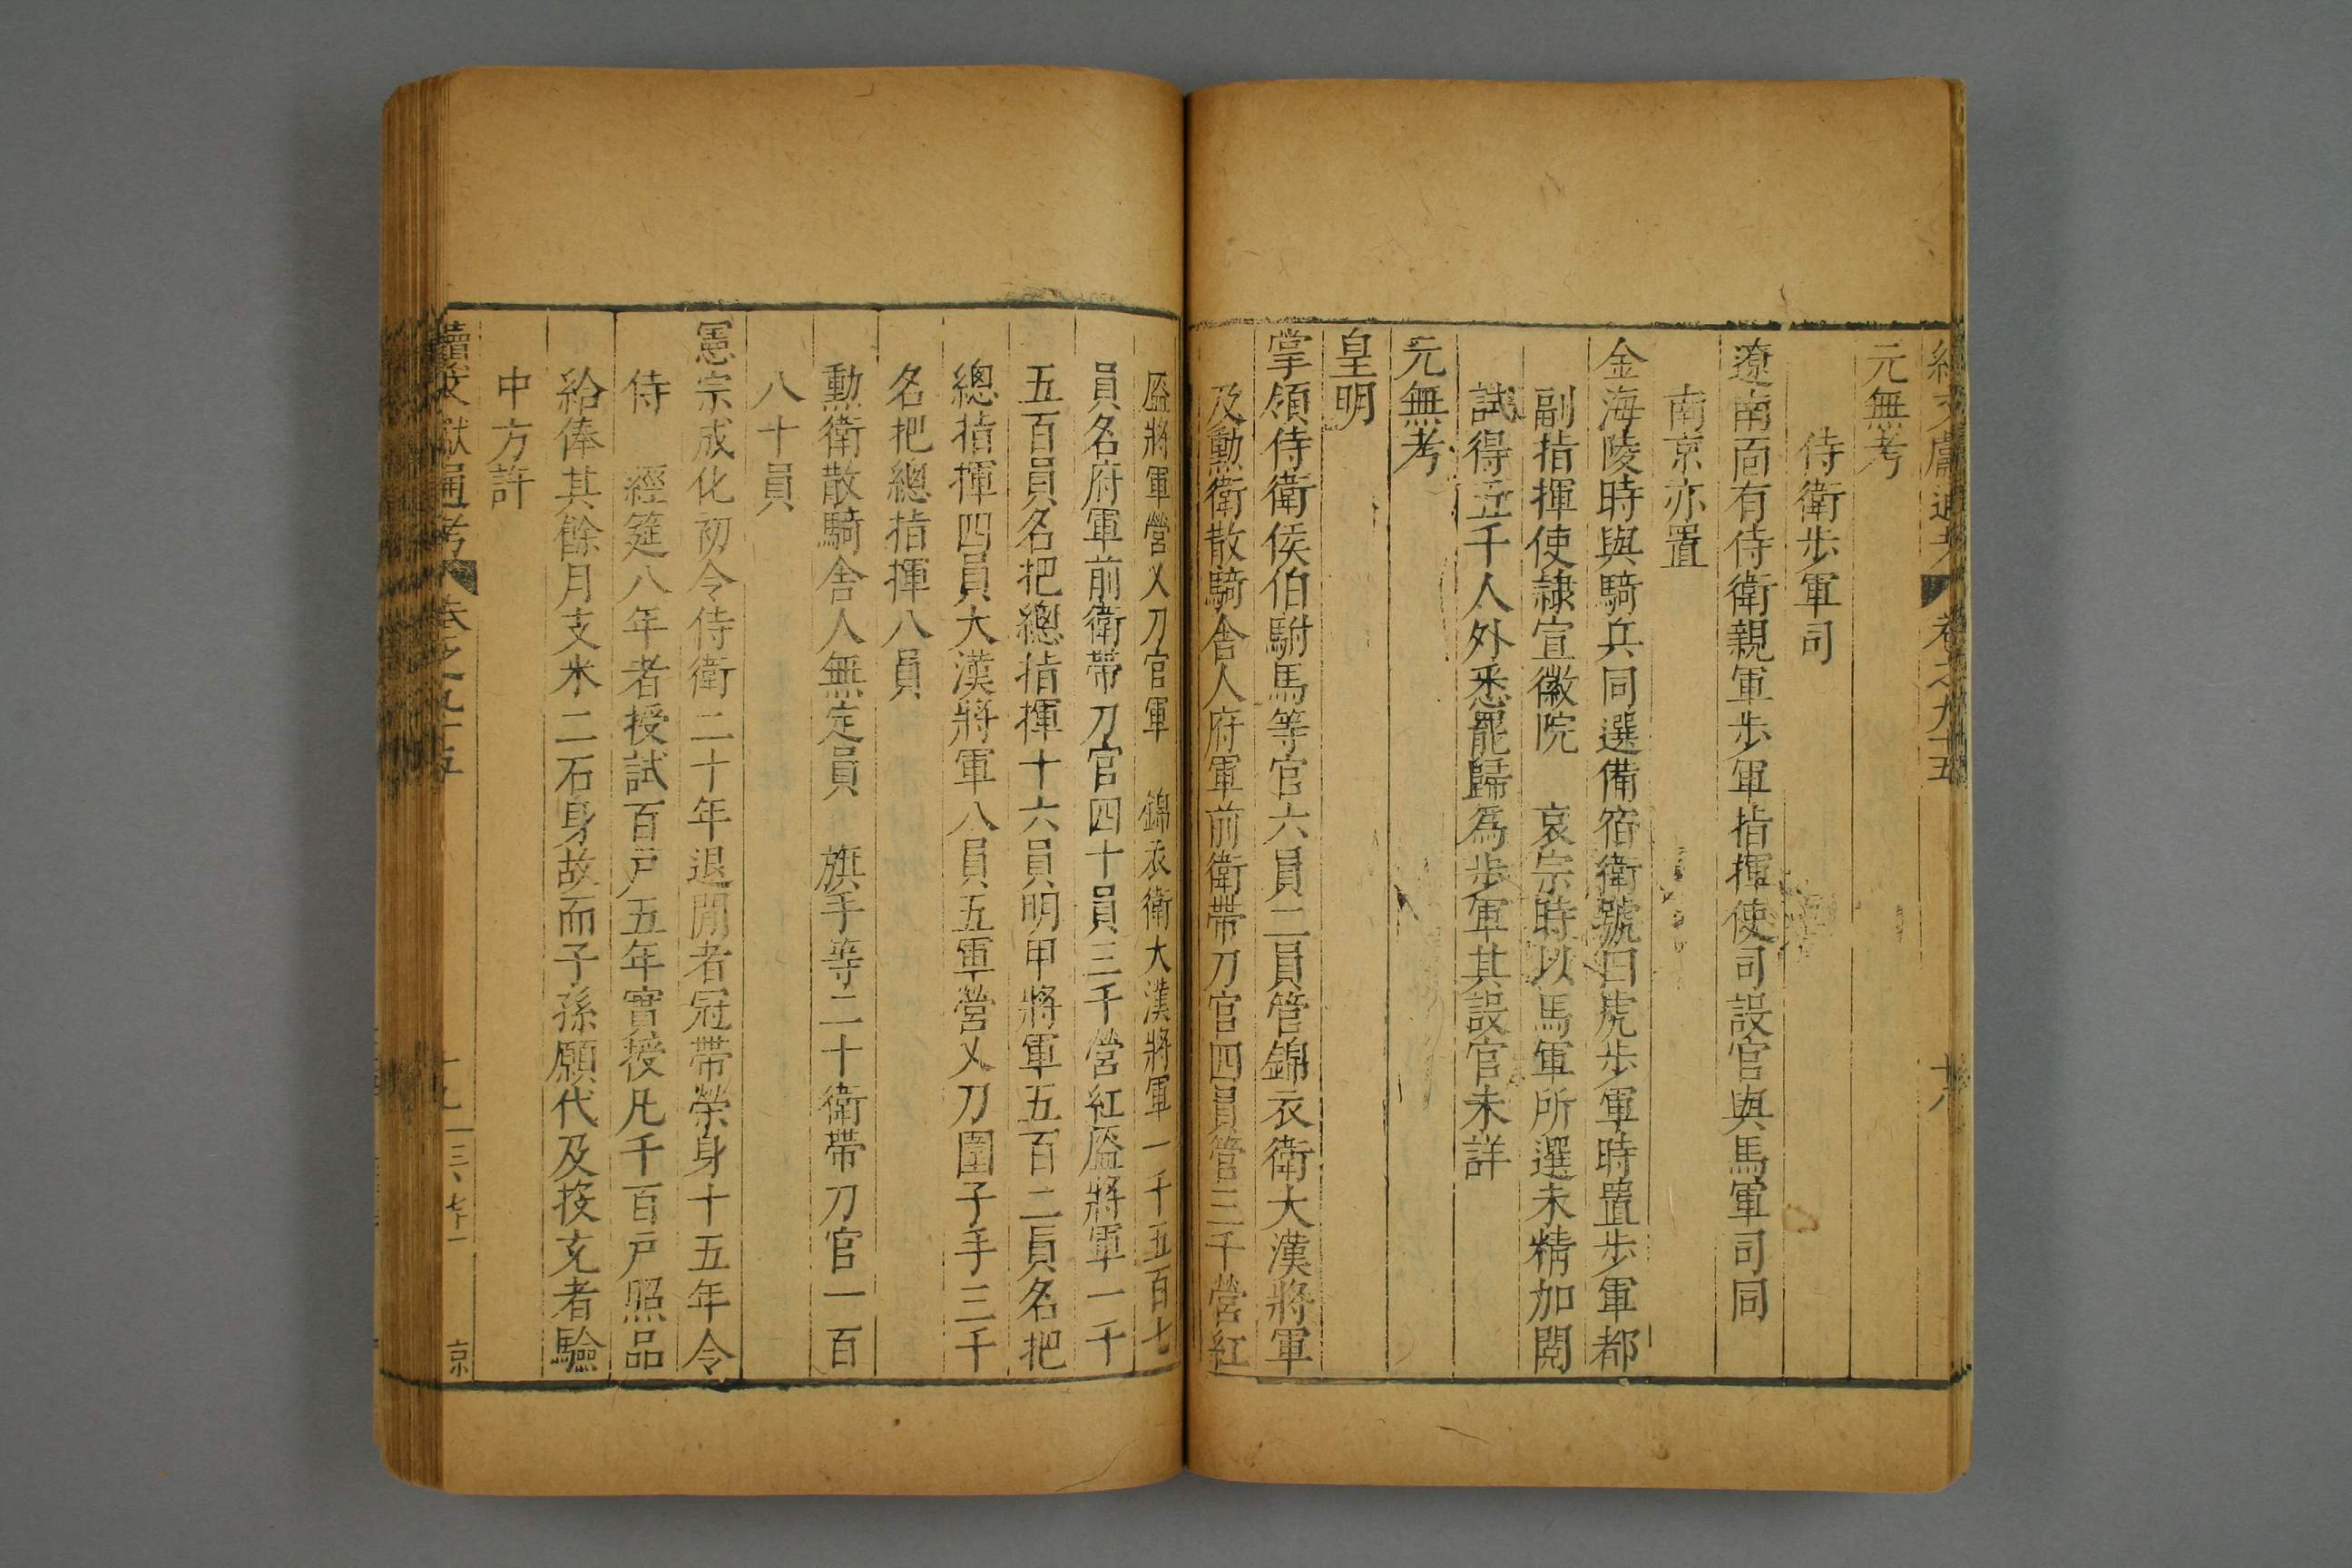 續文獻通考 卷之九十五 十八
元無考
侍衛步軍司
遼南面有侍衛親軍步軍指揮使司設官與馬軍司同
南京亦置
金海陵時與騎兵同選備宿衛號曰虎步軍時置步軍都
副指揮使隷宣徽院 哀宗時以馬軍所選未精加閱
試得五千人外悉罷歸為步軍其設官未詳
元無考
皇明
掌領侍衛侯伯駙馬等官六員二員管錦衣衛大漢將軍
及勳衛散騎舍人府軍前衛帶刀官四員管三千營紅
盔將軍營乂刀官軍 錦衣衛大漢將軍一千五百七
員名府軍前衛帶刀官四十員三千營紅盔將軍一千
五百員名把總指揮十六員明甲將軍五百二員名把
總指揮四員大漢將軍八員五軍營乂刀圍子手三千
名把總指揮八員
勳衛散騎舍人無定員 旗手等二十衛帶刀官一百
八十員
憲宗成化初令侍衛二十年退閒者冠帶榮身十五年令
侍 經筵八年者授試百戶五年實授凡千百戶照品
給俸其餘月支米二石身故而子孫願代及投充者驗
中方許
續文獻通考 卷之九十五 十九 三、七十一 京